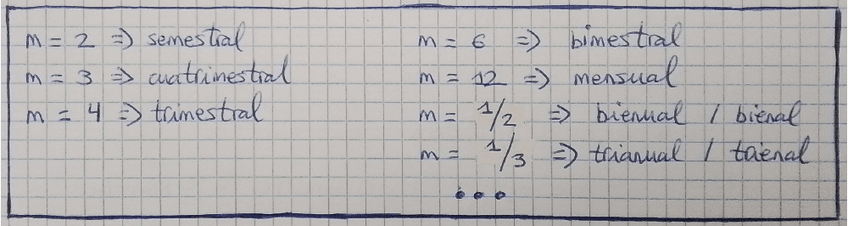 m = 2 => semestral
m = 3 => cuatrimestral
m = 4 => trimestral
m = 6 => bimestral
m = 12 => mensual
m = 1/2 => bienual / bienal
m = 1/3 => trianual / trienal
...